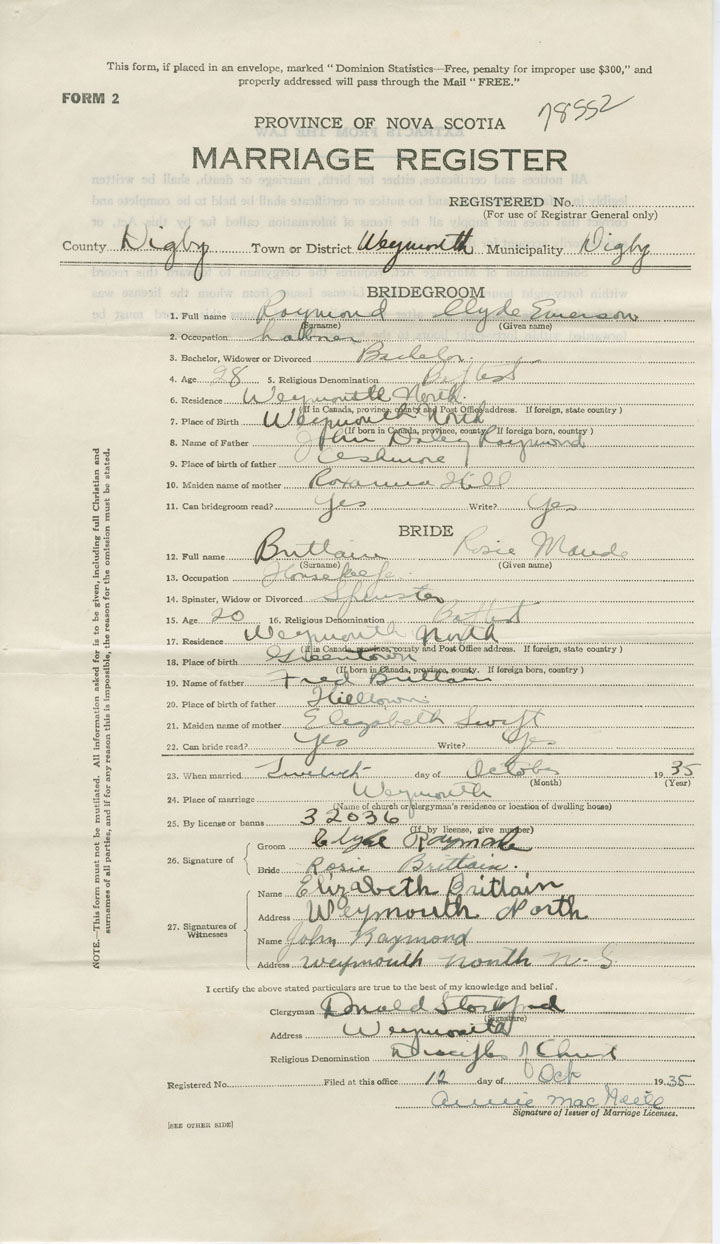 This form, if placed in an envelope, marked "Dominion Statistics—Free, penalty for improper use $300," and
properly addressed will pass through the Mail "FREE."
FORM 2
78552
PROVINCE OF NOVA SCOTIA
MARRIAGE REGISTER
REGISTERED No.
(For use of Registrar General only)
County Digby Town or District Weymouth Municipality Digby
BRIDEGROOM
1. Full name Raymond Clyde Emerson
(Surname) (Given name)
2. Occupation Labner
3. Bachelor, Widower or Divorced Bachelor
4. Age 28 5. Religious Denomination Baptest
6. Residence Weymouth North
(If in Canada, province, county and Post Office address. If foreign, state country)
7. Place of Birth Weymouth North
(If born in Canada, province, county. If foreign born, country)
8. Name of Father John Daley Raymond
9. Place of birth of father Ashmore
10. Maiden name of mother Roxanna Hill
11. Can bridegroom read? Yes Write? Yes
BRIDE
12. Full name Brittain Rosie Maude
(Surname) (Given name)
13. Occupation Housekeeper
14. Spinster, Widow or Divorced Spinster
15. Age 20 16. Religious Denomination Baptest
17. Residence Weymouth North
(If in Canada, province, county and Post Office address. If foreign, state country)
18. Place of birth Greentown
(If born in Canada, province, county. If foreign born, country)
19. Name of father Fred Brittain
20. Place of birth of father Hilltown
21. Maiden name of mother Elizabeth Swift
22. Can bride read? Yes Write? Yes
23. When married Twelveth day of October 1935
(Month) (Year)
24. Place of marriage Weymouth
(Name of church or clergyman's residence or location of dwelling house)
25. By license or banns 32036
(If by license, give number)
26. Signature of Groom Clyde Raymond
Bride Rosie Brittain.
27. Signatures of Witnesses Name Elizabeth Brittain
Address Weymouth North
Name John Raymond
Address Weymouth North N-S
I certify the above stated particulars are true to the best of my knowledge and belief.
Clergyman Donald
(Signature)
Address Weymouth
Religious Denomination Disciples of Christ
Registered No. Filed at this office 12 day of Oct 1935
Annie MacNeill
Signature of Issuer of Marriage Licenses.
[SEE OTHER SIDE]
NOTE.—This form must not be mutilated. All information asked for is to be given, including full Christian and
surnames of all parties, and if for any reason this is impossible, the reason for the omission must be stated.